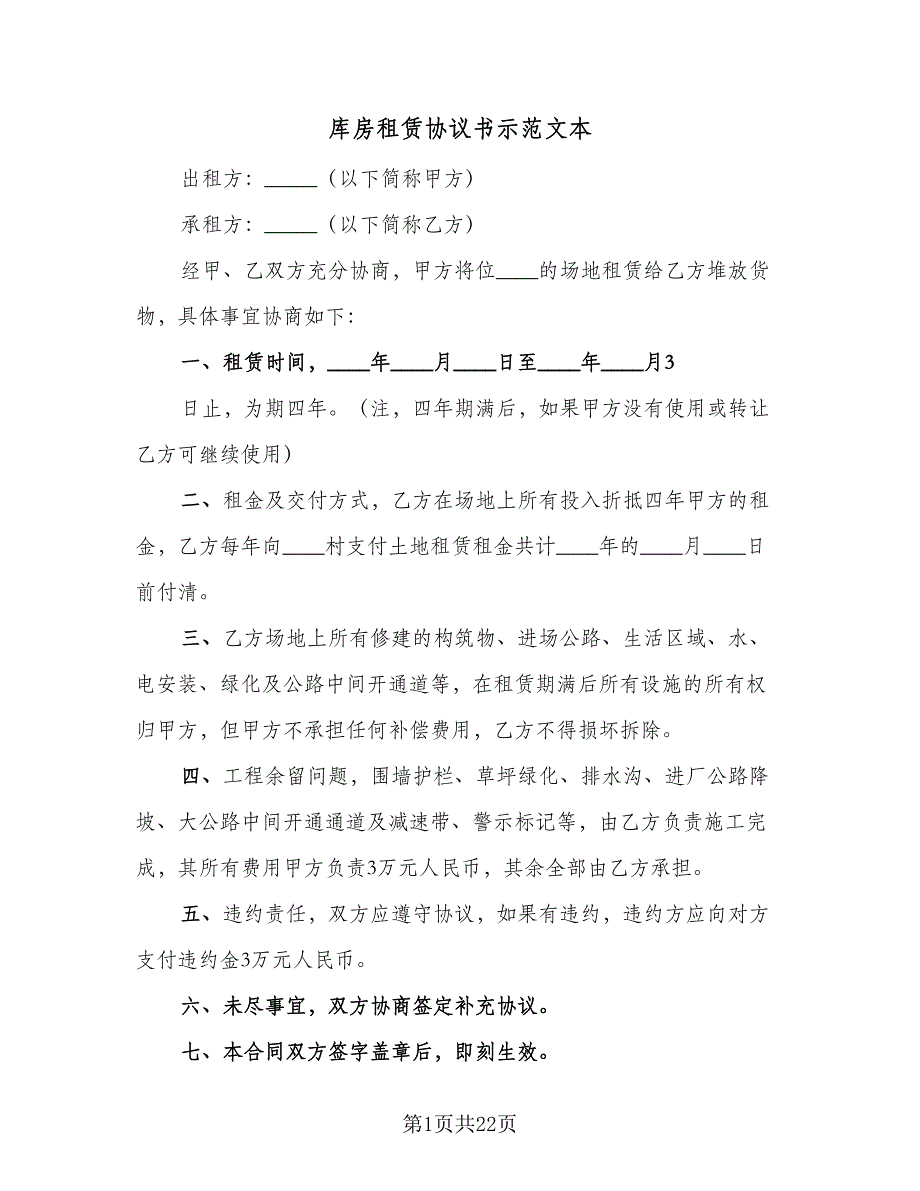 库房租赁协议书示范文本
出租方：_____（以下简称甲方）
承租方：_____（以下简称乙方）
经甲、乙双方充分协商，甲方将位____的场地租赁给乙方堆放货
物，具体事宜协商如下：
一、租赁时间，____年____月____日至____年____月3
日止，为期四年。（注，四年期满后，如果甲方没有使用或转让
乙方可继续使用）
二、租金及交付方式，乙方在场地上所有投入折抵四年甲方的租
金，乙方每年向____村支付土地租赁租金共计____年的____月____日
前付清。
三、乙方场地上所有修建的构筑物、进场公路、生活区域、水、
电安装、绿化及公路中间开通道等，在租赁期满后所有设施的所有权
归甲方，但甲方不承担任何补偿费用，乙方不得损坏拆除。
四、工程余留问题，围墙护栏、草坪绿化、排水沟、进厂公路降
坡、大公路中间开通通道及减速带、警示标记等，由乙方负责施工完
成，其所有费用甲方负责3万元人民币，其余全部由乙方承担。
五、违约责任，双方应遵守协议，如果有违约，违约方应向对方
支付违约金3万元人民币。
六、未尽事宜，双方协商签定补充协议。
七、本合同双方签字盖章后，即刻生效。
第1页共22页